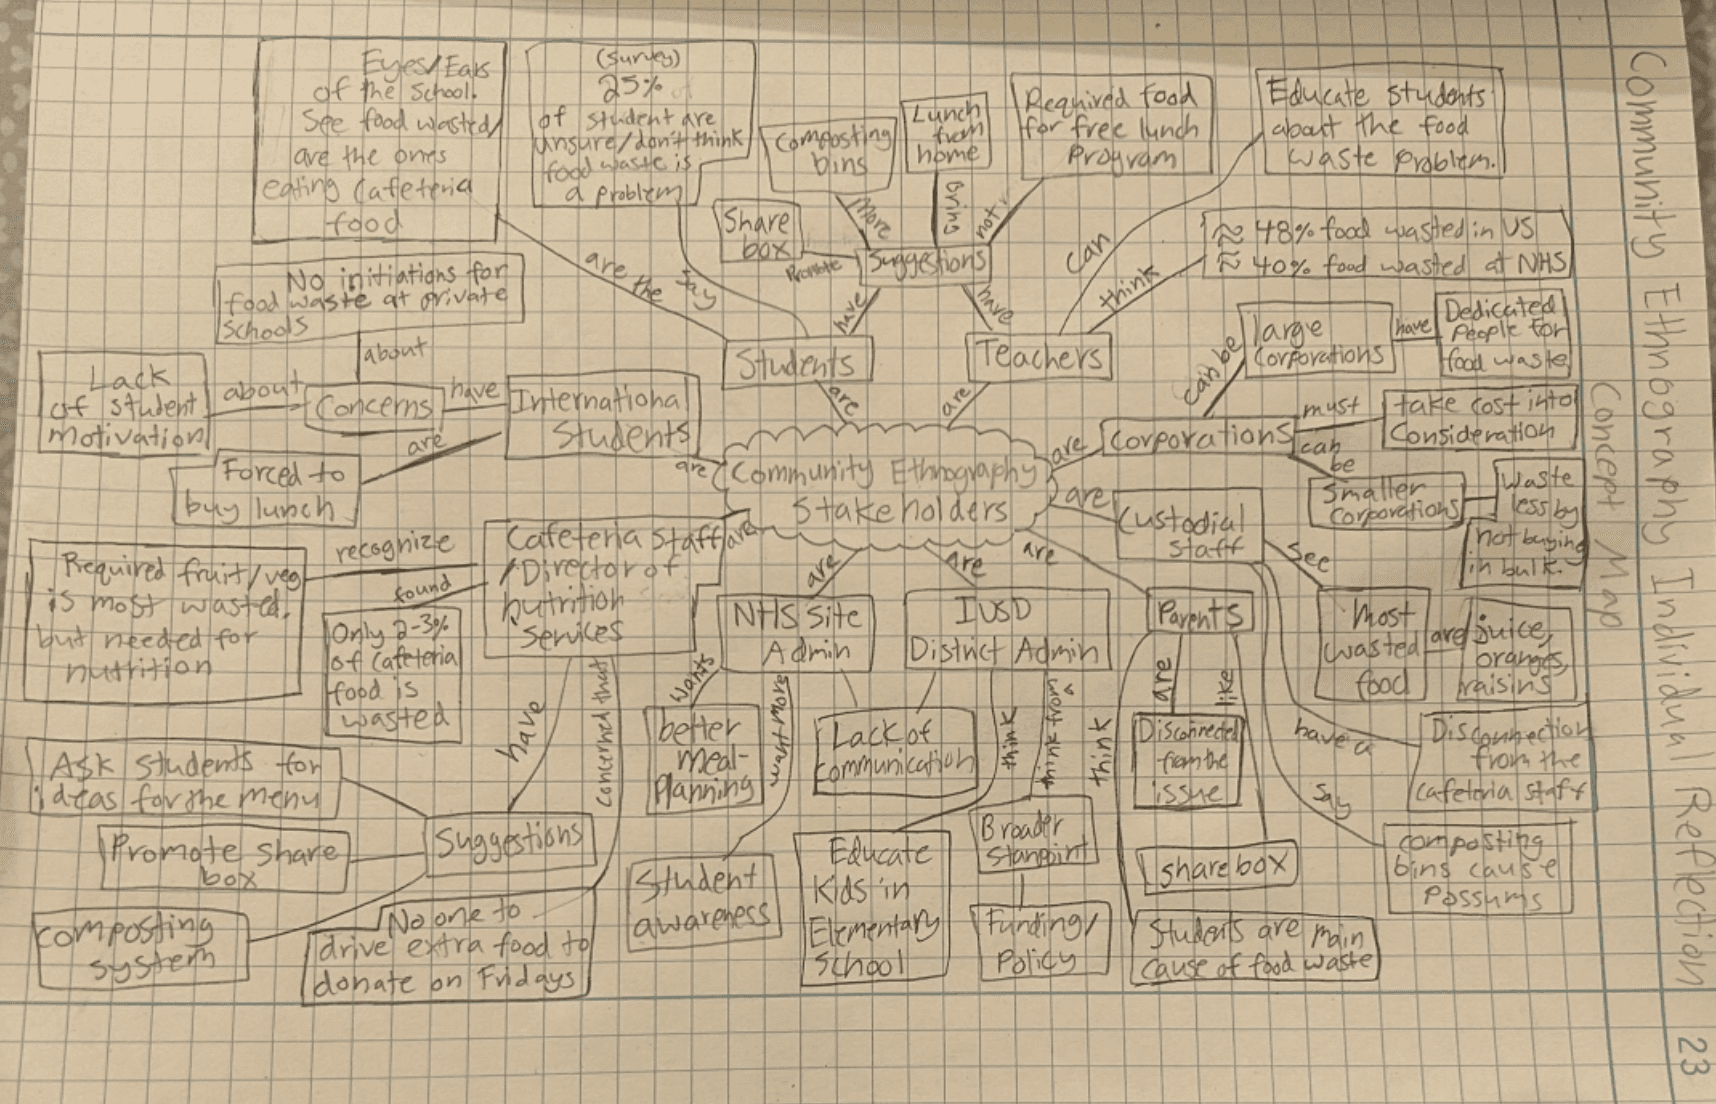 Community Ethnography Individual Reflection 23
Concept Map
Eyes/Ears
of the School.
See food wasted/
are the ones
eating Cafeteria
food
(survey)
25%
of student are
unsure/don't think
food waste is
a problem
Composting
bins
Lunch
from
home
Required food
for free lunch
program
Educate students
about the food
waste problem.
Share
box
More
Bring
not
Promote
Suggestions
≈ 48% food wasted in US
≈ 40% food wasted at NHS
are the
say
have
have
can
think
No initiations for
food waste at private
schools
about
Students
Teachers
are
are
can be
large
Corporations
have
Dedicated
People for
food waste
Lack
of student
motivation
about
Concerns
have
International
Students
are
are
Forced to
buy lunch
Community Ethnography
Stakeholders
are
Corporations
must
take cost into
Consideration
can
be
Smaller
Corporations
Waste
less by
not buying
in bulk.
are
Custodial
staff
see
most
wasted
food
are
juice,
oranges,
raisins
have a
Disconnection
from the
cafeteria staff
say
composting
bins cause
possums
Required fruit/veg
is most wasted,
but needed for
nutrition
recognize
found
Only 2-3%
of Cafeteria
food is
wasted
Cafeteria Staff
/Director of
nutrition
Services
are
have
concernd that
Ask students for
ideas for the menu
Promote share
box
composting
system
Suggestions
No one to
drive extra food to
donate on Fridays
are
NHS Site
Admin
wants
better
meal-
Planning
want more
Student
awareness
Lack of
Communication
are
IUSD
District Admin
think
Educate
Kids in
Elementary
School
think from a
Broader
Stanpoint
Funding/
Policy
are
Parents
are
Disconnected
from the
issue
like
share box
think
Students are main
cause of food waste